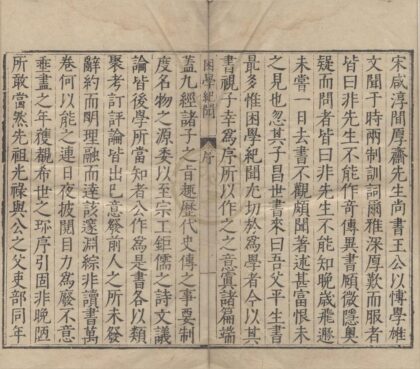 宋咸淳間厚齋先生尚書王公以博學雄
文聞于時兩制訓詞爾雅深厚歎而服者
皆曰非先生不能作奇傳異書顧微隱奧
疑而問者皆曰非先生不能知晚歲飛遯
未嘗一日去書不觀顧聞著述甚富恨未
之見也忽其子昌世書來曰吾父平生書
最多惟困學紀聞尤切於爲學者今以其
書視子幸爲序所以作之之意寘諸篇端
困學紀聞 序
蓋九經諸子之旨趣歷代史傳之事要制
度名物之源委以至宗工鉅儒之詩文議
論皆後學所當知者公作爲是書各以類
聚考訂評論皆出己意發前人之所未發
辭約而明理融而達該邃淵綜非讀書萬
卷何以能之連日夜披閱目力爲廢不意
垂盡之年獲觀希世之珍序引固非晚陋
所敢當然先祖光祿與公之父吏部同年